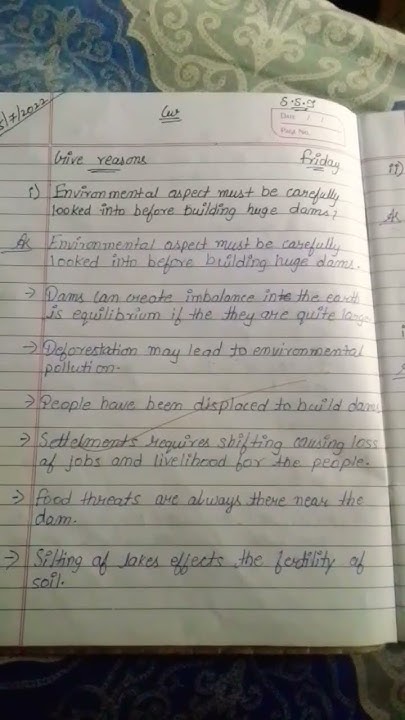 5/7/2022
CW
S.S.T
Date / /
Page No.
Give reasons
friday
i) Environmental aspect must be carefully
looked into before building huge dams?
A Environmental aspect must be carefully
looked into before building huge dams.
→ Dams can create imbalance into the earth
is equilibrium if the they are quite large
→ Deforestation may lead to environmental
pollution.
→ People have been displaced to build dams
→ Settelments requires shifting causing loss
of jobs and livelihood for the people.
→ food threats are always there near the
dam.
→ Silting of lakes effects the fertility of
soil.
ii)